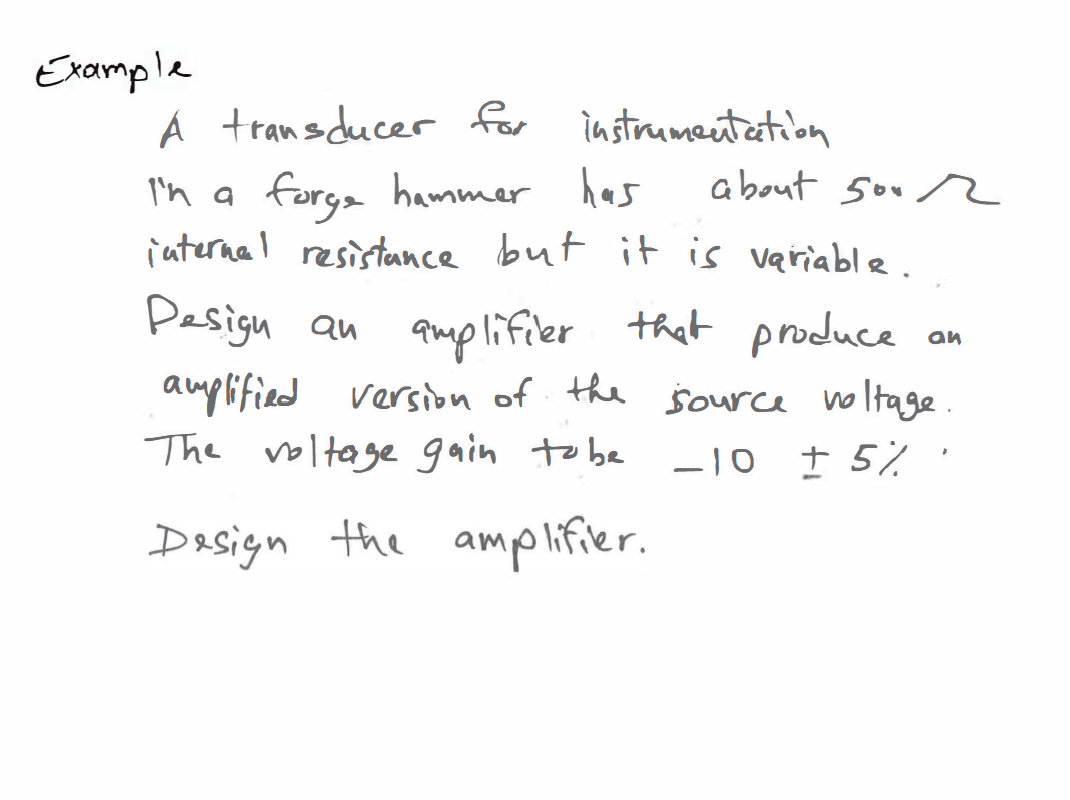 Example
A transducer for instrumentation
in a forge hammer has about 500 Ω
internal resistance but it is variable.
Design an amplifier that produce an
amplified version of the source voltage.
The voltage gain to be -10 ± 5%.
Design the amplifier.